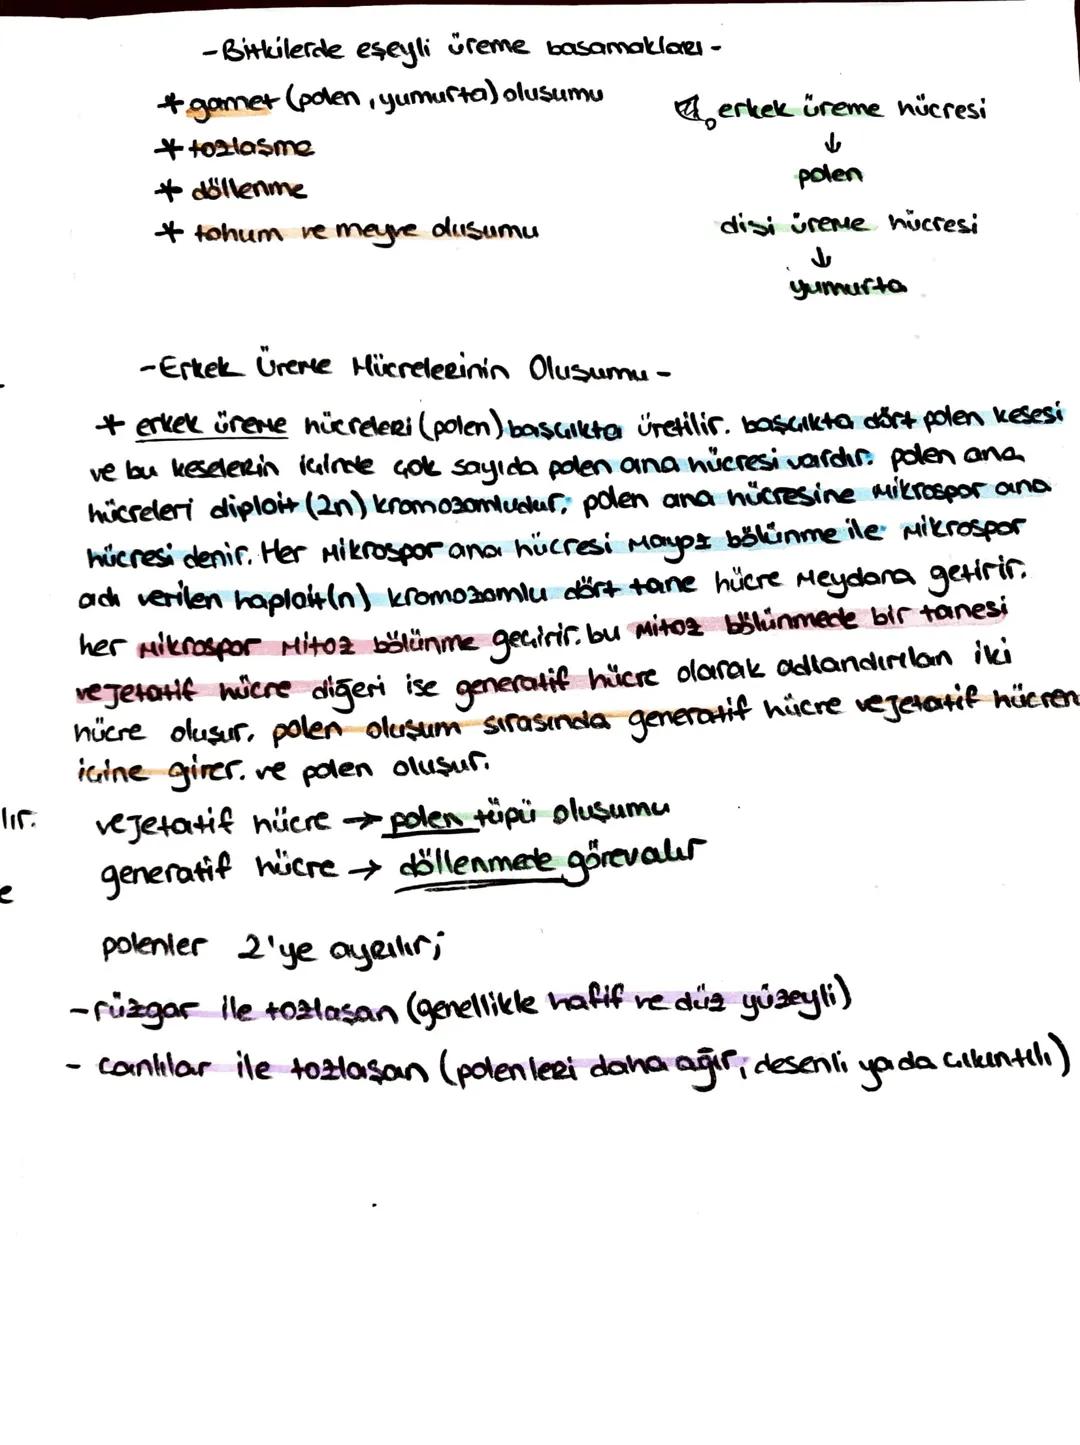 -Bitkilerde eşeyli üreme basamakları-
* gamet (polen, yumurta) oluşumu
* tozlaşma
* döllenme
* tohum ve meyve oluşumu
erkek üreme hücresi
↓
polen
dişi üreme hücresi
↓
yumurta
-Erkek Üreme Hücrelerinin Oluşumu-
* erkek üreme hücreleri (polen) başçıkta üretilir. başçıkta dört polen kesesi
ve bu keselerin içinde çok sayıda polen ana hücresi vardır. polen ana
hücreleri diploit (2n) kromozomludur, polen ana hücresine mikrospor ana
hücresi denir. Her mikrospor ana hücresi mayoz bölünme ile mikrospor
adı verilen haploit(n) kromozomlu dört tane hücre meydana getirir.
her mikrospor mitoz bölünme geçirir. bu mitoz bölünmede bir tanesi
vejetatif hücre diğeri ise generatif hücre olarak adlandırılan iki
hücre oluşur. polen oluşum sırasında generatif hücre vejetatif hücren
içine girer. ve polen oluşur.
lır.
vejetatif hücre → polen tüpü oluşumu
generatif hücre → döllenmede görev alır
e
polenler 2'ye ayrılır;
-rüzgar ile tozlaşan (genellikle hafif ve düz yüzeyli)
- canlılar ile tozlaşan (polenleri daha ağır, desenli ya da çıkıntılı)